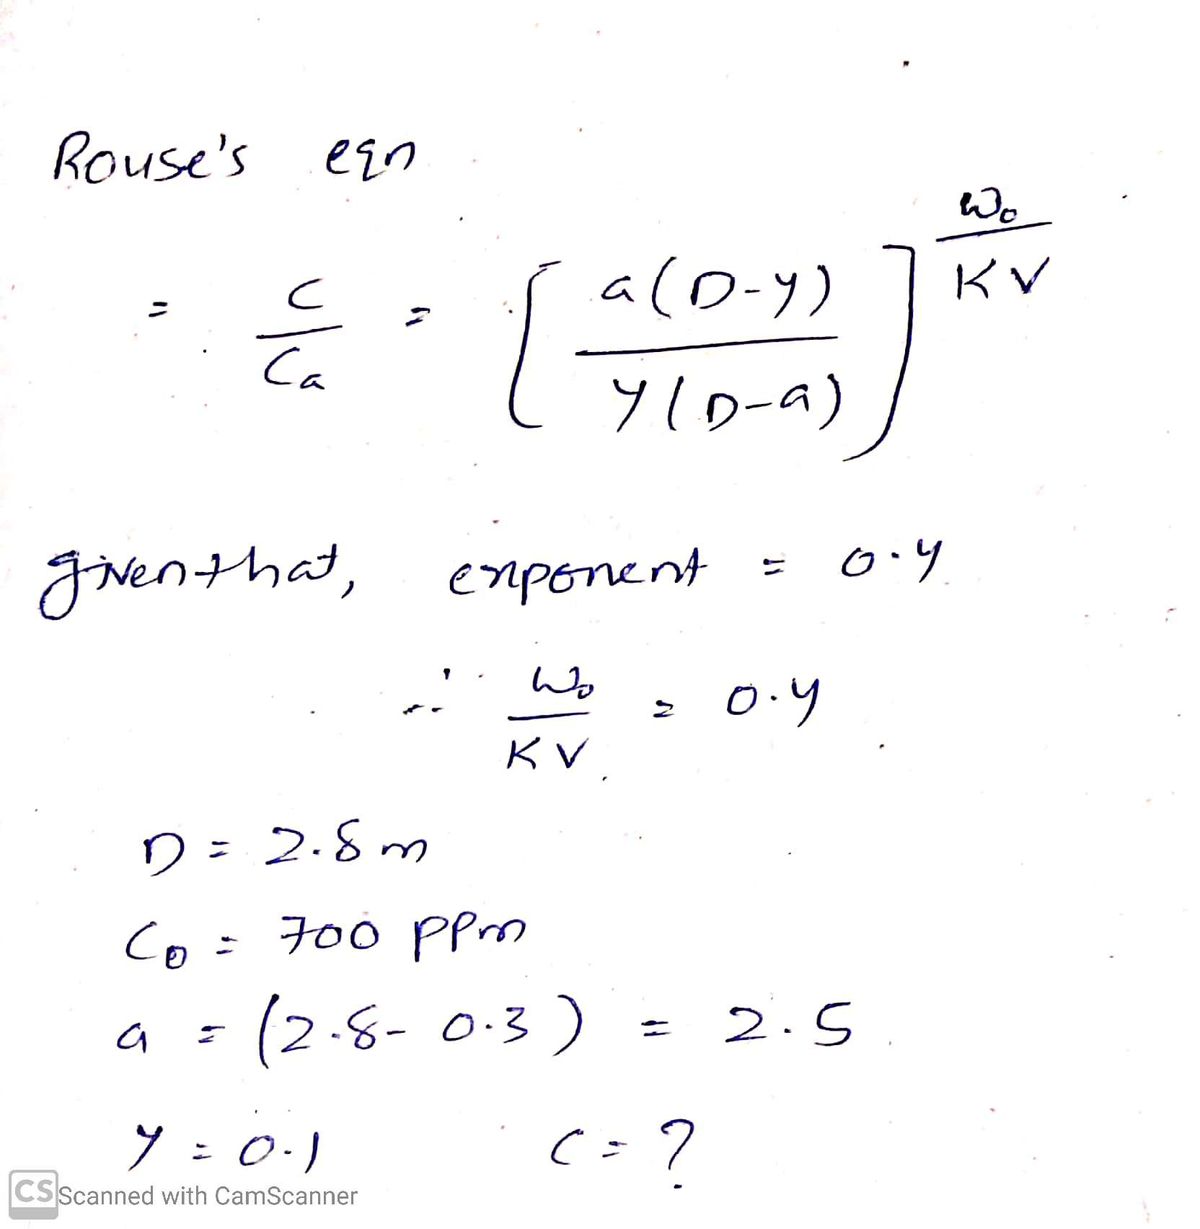 Rouse's eqn
= C/Ca = [a(D-y)/y(D-a)]^(Wo/KV)
given that, exponent = 0.4
∴ Wo/KV = 0.4
D = 2.8 m
Co = 700 PPm
a = (2.8 - 0.3) = 2.5
y = 0.1 C = ?
CS Scanned with CamScanner